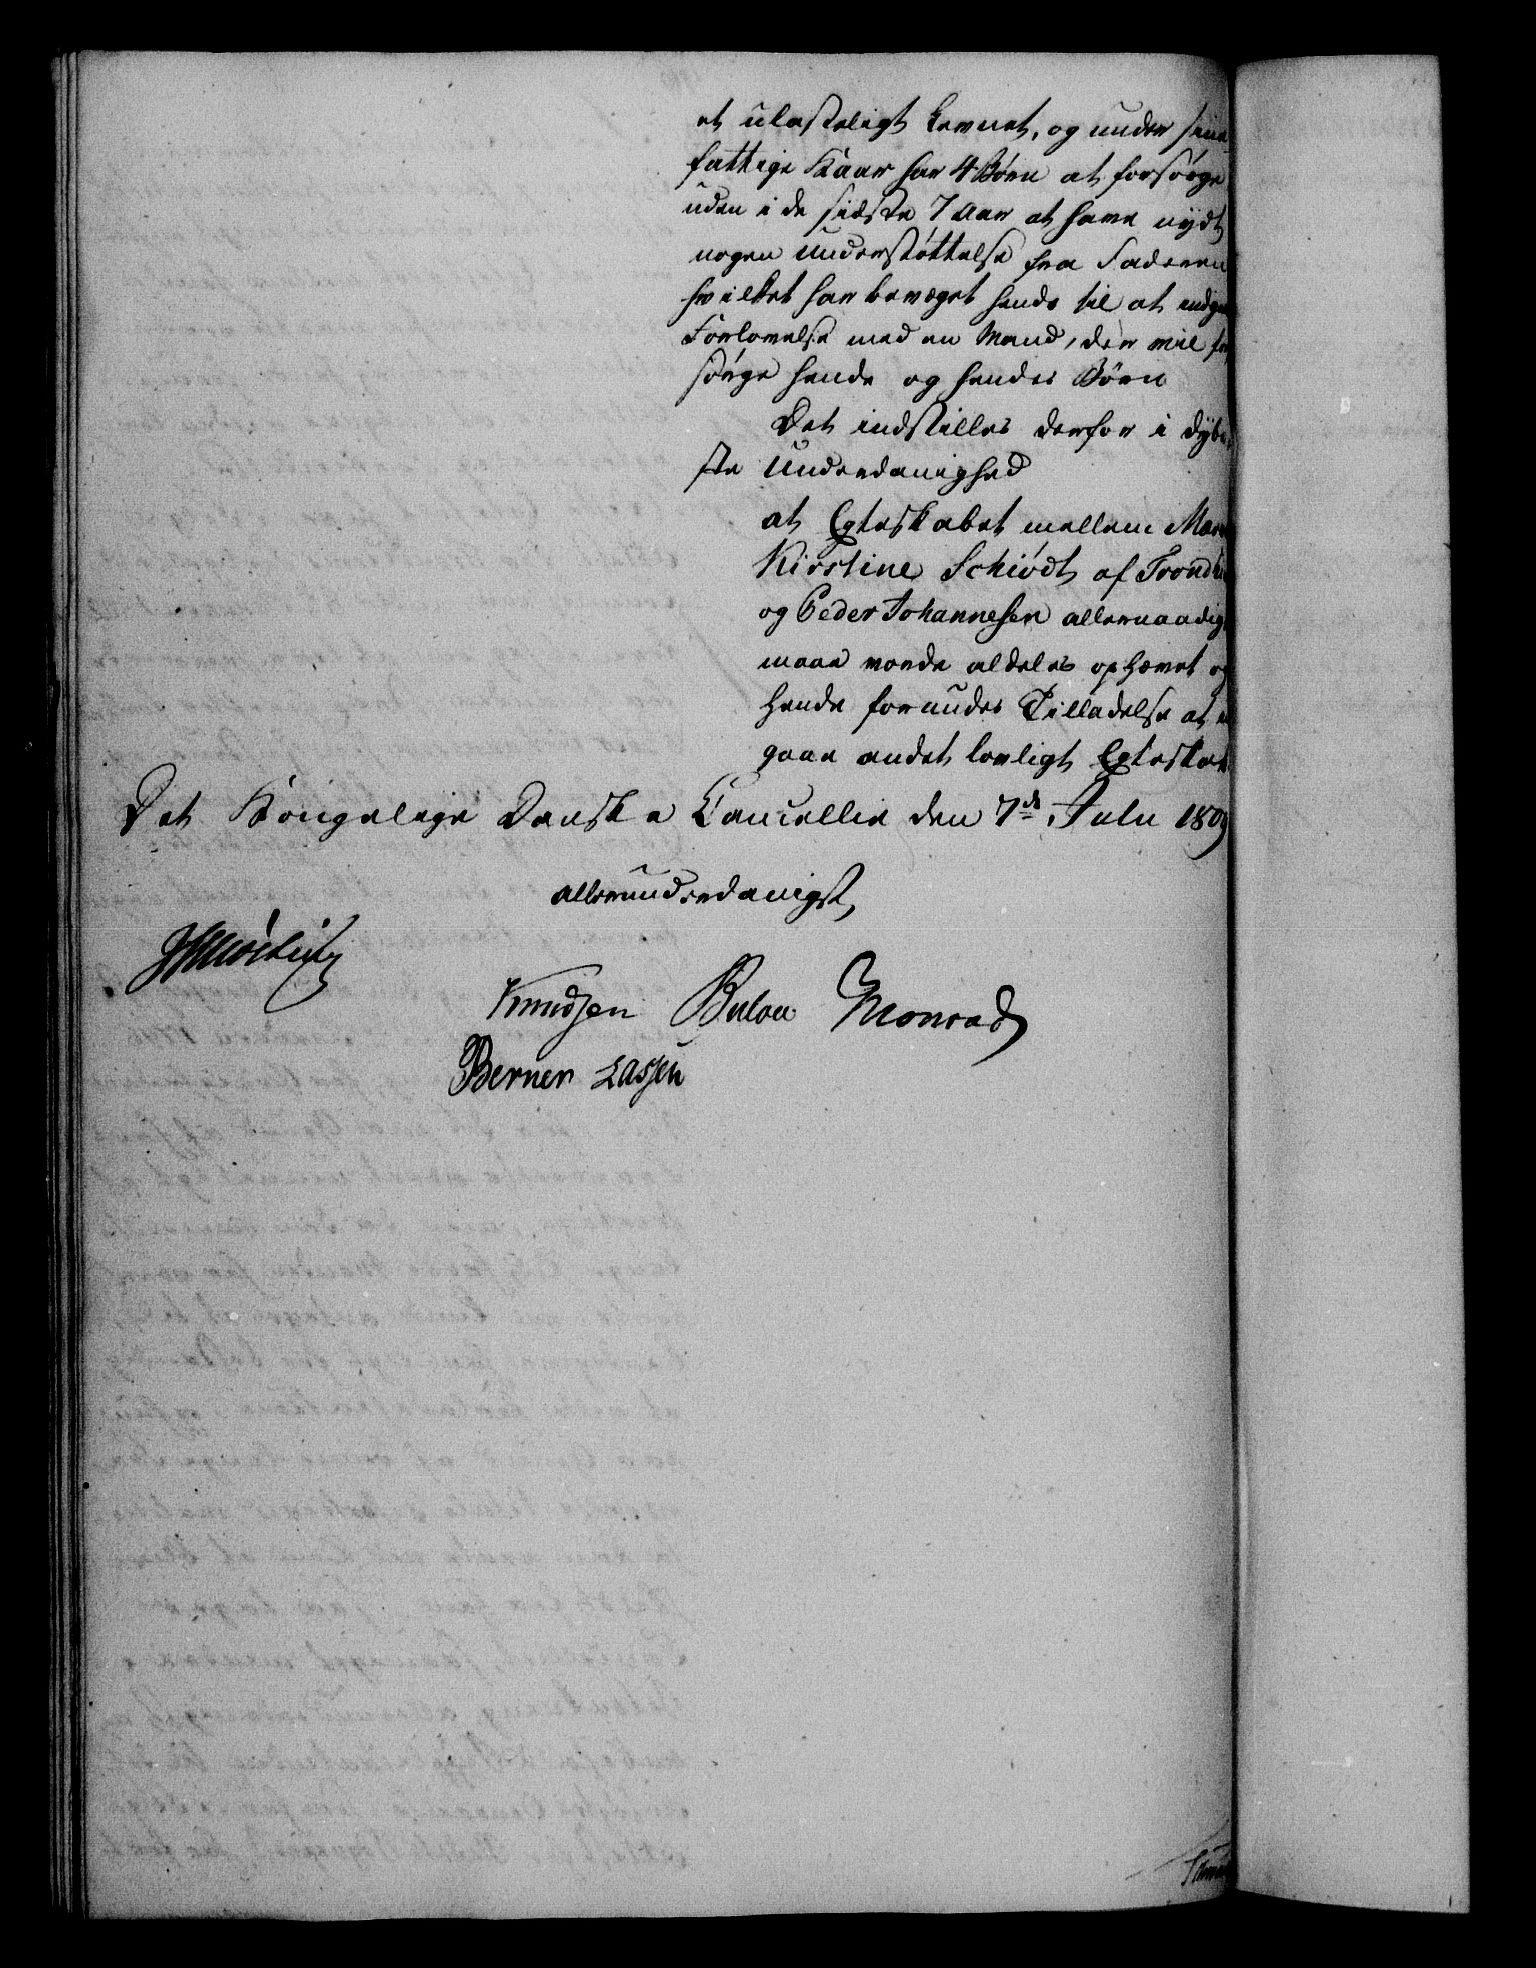 et ulasteligt Levnet, og under sine
fattige Kaar har 4 Børn at forsørge
uden i de sidste 7 Aar at have nydt
nogen Understøttelse fra Faderen
hvilket har bevæget hende til at indgaa
Forlovelse med en Mand, der vil for
sørge hende og hendes Børn
Det indstilles derfor i dybe-
ste Underdanighed
at Egteskabet mellem
Kirstine Schiødt af Trondh
og Peder Johannesen allernaadigst
maae vorde aldeles ophævet og
hende forundes Tilladelse at
gaae andet lovligt Egteskab.
Det Kongelige Danske Cancellie den 7de Julii 1809
allerunderdanigst,
Knudsen Bülow Monrad
Berner Lassen